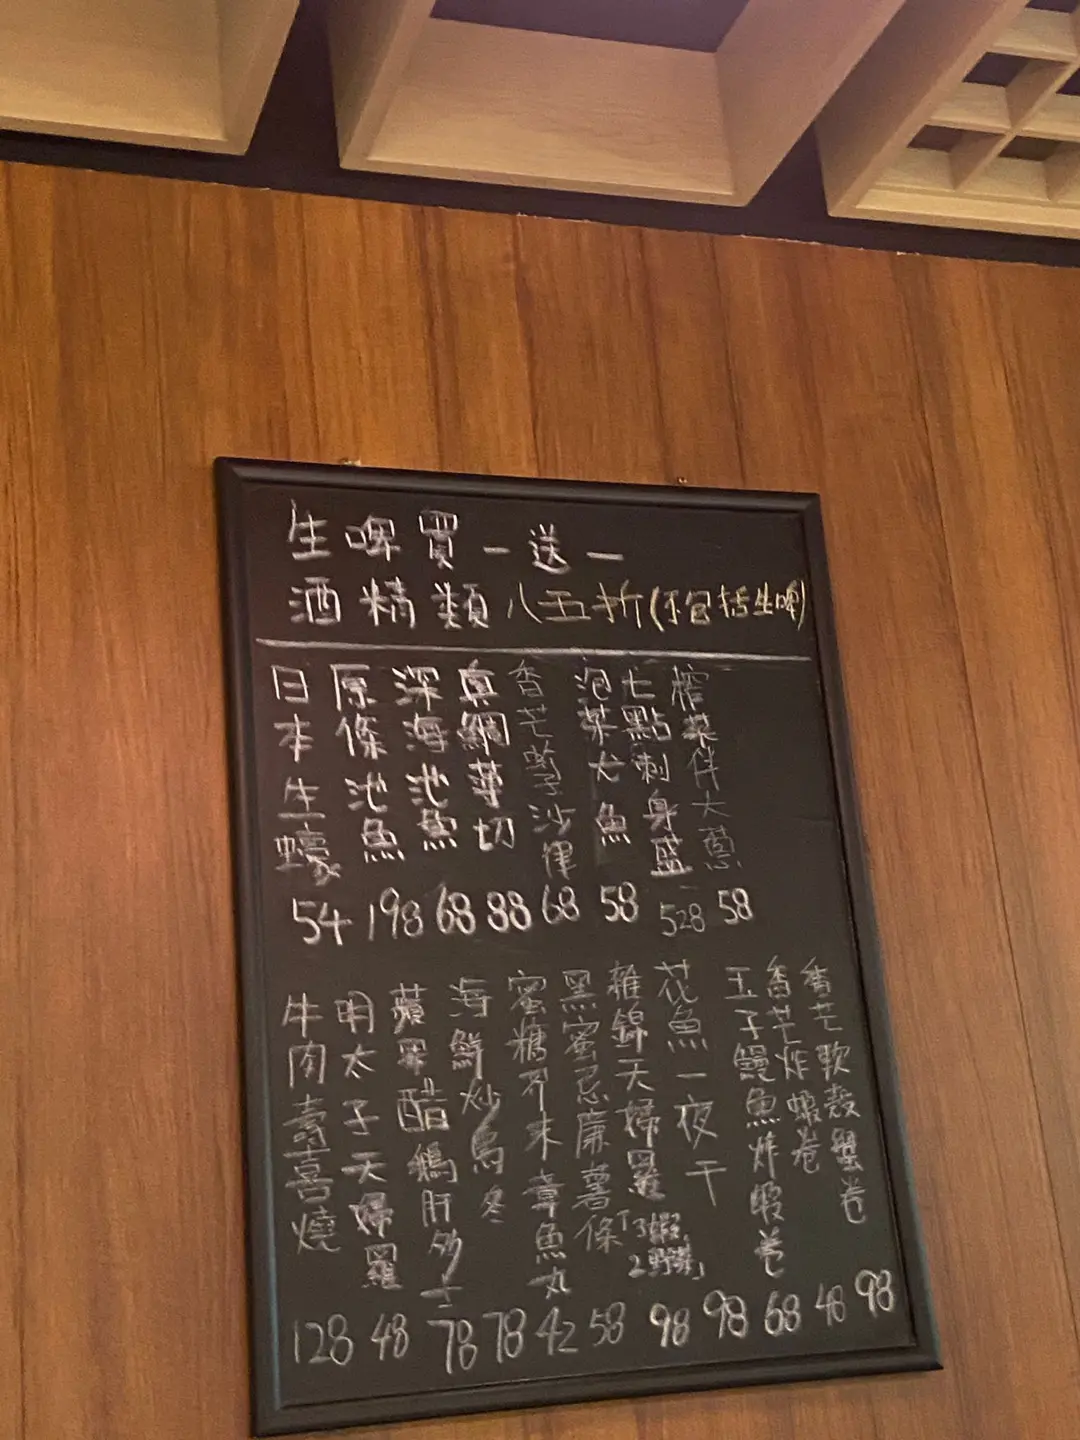 生啤買一送一
酒精類八五折(不包括生啤)
日本生蠔 54
原條池魚 198
深海池魚 68
真鯛薄切 88
香芒蝦子沙律 68
泡菜尤魚 58
七點刺身盛 528
榨菜伴大蔥 58
牛肉壽喜燒 128
明太子天婦羅 48
蘋果醋鵝肝多士 78
海鮮炒烏冬 78
蜜糖芥末章魚丸 42
黑蜜忌廉薯條 58
雜錦天婦羅「3蝦2野菜」 98
花魚一夜干 98
玉子鰻魚炸蝦卷 68
香芒炸蝦卷 48
香芒軟殼蟹卷 98